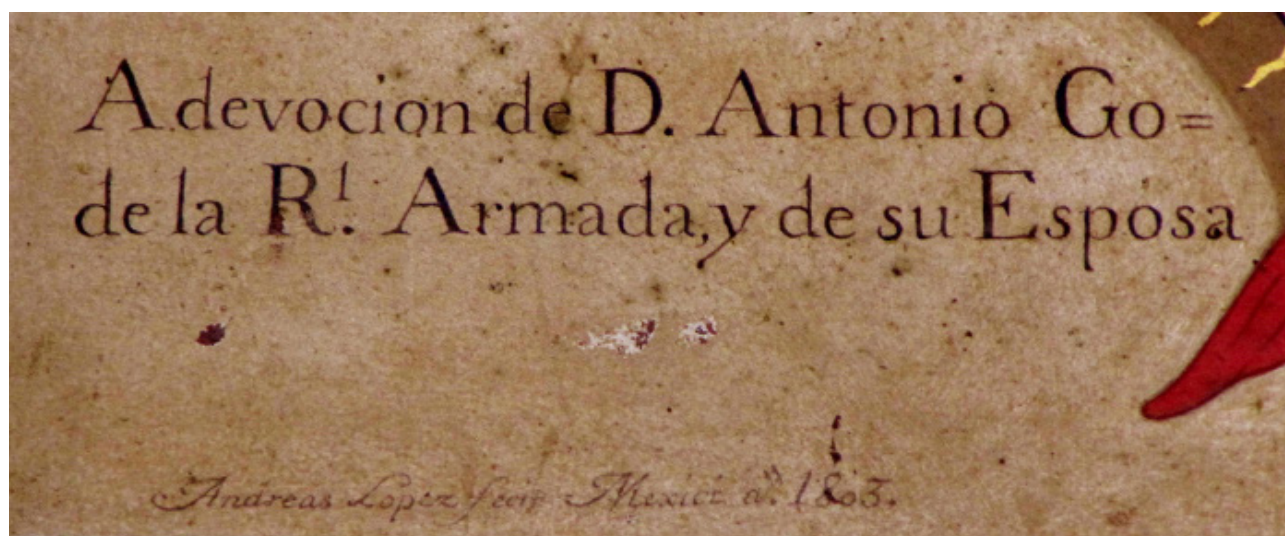 A devocion de D. Antonio Go=
de la Rl. Armada, y de su Esposa
Andreas Lopez fecit Mexici aº. 1803.